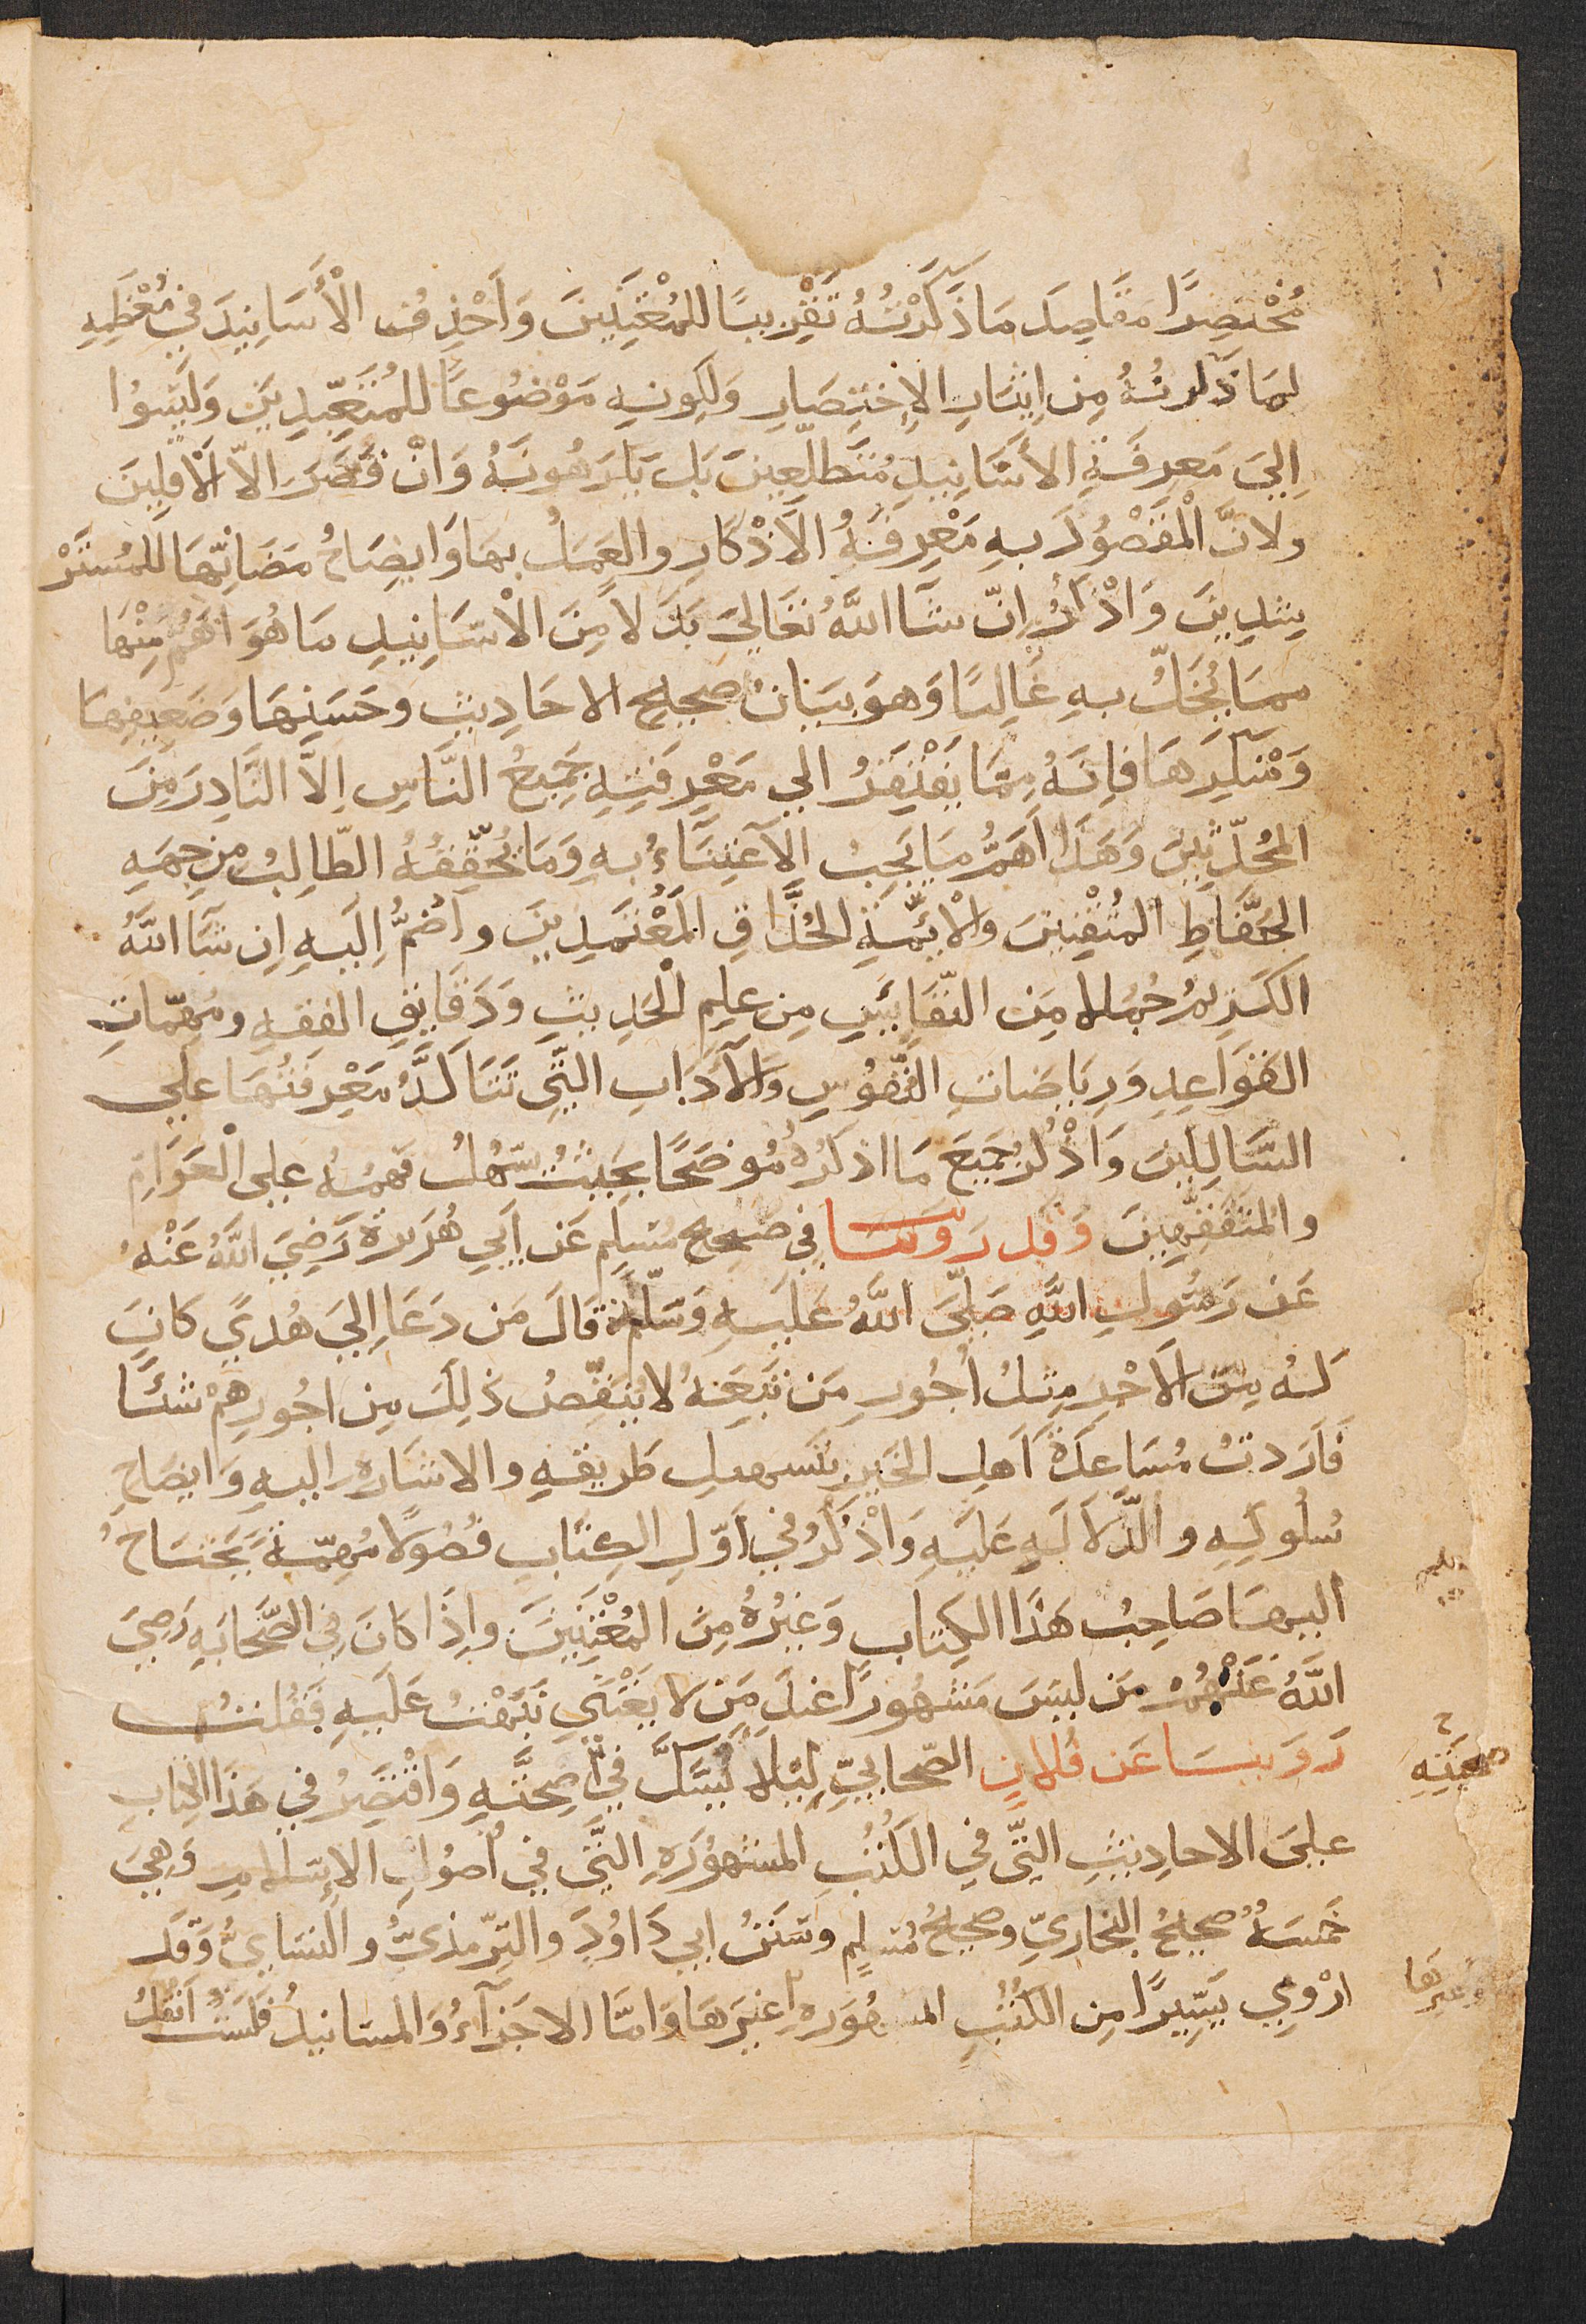 مُخْتَصِرًا مَقَاصِدَ مَا ذَكَرْتُهُ تَقْرِيبًا لِلمُعْتَنِينَ وَأحْذِفُ الْأَسَانِيدَ فِي مُعْظَمِهِ
لِمَا ذَكَرْتُهُ مِن إيْثَارِ الإِخْتِصَارِ وَلِكَونِهِ مَوْضُوعًا لِلمُتَعَبِّدِينَ وَلَيْسُوا
اِلَي مَعرِفَةِ الأَسَانِيدِ مُتَطَلِّعِينَ بَل يَكرَهُونَهُ وَانْ قَصُرَ الاّ الَاقَلِينَ
ولانَّ الْمَقْصُودَ بهِ مَعْرِفَةُ الاَذْكَارِ والعَمَلُ بهَا وَايضِاحُ مَضَانِّهَا لِلمُستَرْ
شِدِينَ وَاذْكُرُ اِنّ شَآ اللَّهُ تَعَالَي بَدَلا مِنَ الْاسَانِيدِ مَا هُوَ اهَمُّ مِنْهَا
ممَا يُخَلُّ بهِ غَالِبًا وَهوَ بيَانُ صحِيحِ الاحَادِيثِ وحَسَنِهَا وَضعِيفِهَا
وَمُنكَرِهَا فَإنَّهُ مِمَّا يَفْتَقِرُ الي مَعْرِفَتِهِ جَمِيعُ النَّاسِ اِلاَّ النَّادِرَ مِنَ
المُحُدّثِينَ وَهَذَا اَهَمُّ مَا يَجِبُ الِاعْتِنَاءُ بهِ وَمَا يُحَقِّقُهُ الطّالِبُ مِن جِهَةِ
الحُفَّاظِ المُتْقِنِينَ وَالْائِمَّةِ الحُذَّاقِ المُعْتَمَدِينَ وَاضُمُّ اِلَيهِ اِن شَآ اللَّهُ
الكَرِيمُ جُمَلا مِنَ النّفَايِسِ مِن عِلمِ الْحَدِيثِ وَدَقَايِقِ الفقهِ ومُهِمَّاتِ
القَوَاعِدِ وَرِيَاضَاتِ النُّفُوسِ وَالآدَابِ الَّتِي تَتَاكَّدُ مَعْرِفَتُهَا عَلَي
السَّالِكِينَ وَاذْكُرُ جَمِيعَ مَا اذكُرُهُ مُوضَحًا بحَيثُ يَسْهُلُ فَهمُهُ عَلَي الْعَوَامّ
والمُتَفَقِّهِينَ وَقَد رَوَينَا فِي صَحِيحِ مُسلِم عَن اَبِي هُرَيرَة رَضِيَ اللَّهُ عَنْهُ
عَن رَسُولِ اللَّهِ صَلَّى اللَّهُ عَلَيهِ وَسَلَّمَ قَالَ مَن دَعَا اِلَيَ هُدًي كَانَ
لَهُ مِنَ الاَجْرِ مِثلُ اُجُورِ مَن تَبِعَهُ لا يَنقُصُ ذَلِكَ مِن اجُورِهِمْ شَئًا
فَاَرَدتُ مُسَاعِدَةَ اَهلِ الخَيرِ بتَسهيلِ طَرِيقِهِ والاشَارَه اليهِ وَايضَاحِ
سُلُوكِهِ والدّلالَةِ عَلَيهِ وَاذْكُرُ فِي اوَّلِ الكِتَابِ فُصُولًا مُهِمّةً يَحتَاجُ
اليهَا صَاحِبُ هَذَا الكِتَابِ وَغَيرُهُ مِنَ المُعْتَنِينَ واِذَا كَانَ فِي الصَّحَابَهِ رَضِيَ
اللَّهُ عَنْهُمُ مَن ليسَ مَشهُورًا عندَ مَن لا يَعْتَنِي نَبَّهْتُ عَلَيهِ فَقُلتُ
رَوَينَا عَن فُلانٍ الصّحابيّ لِيَلا يُشَكَّ فِي صُحبَتِهِ وَاقْتَصِرُ فِي هَذَا الكِتَابِ
صحبَتِهِ
علَيَ الاحادِيثِ الَّتي فِي الكُتُبِ المشهُورَهِ الَّتي فِي اُصُولِ الإسلامِ وَهِيَ
خَمسَةٌ صحِيحُ البُخارِيّ وصحِيحُ مُسلِم وسُنَنُ ابِي دَاوُدَ والتِرْمذِيُّ والنسَايُّ وَقَد
ارْوِي يَسِيرًا مِن الكُتُبِ المشهُورَه غَيرَهَا وَامَّا الاجَزَآءُ وَالمسَانيدُ فَلَستُ اَنقُلُ
وغيرها